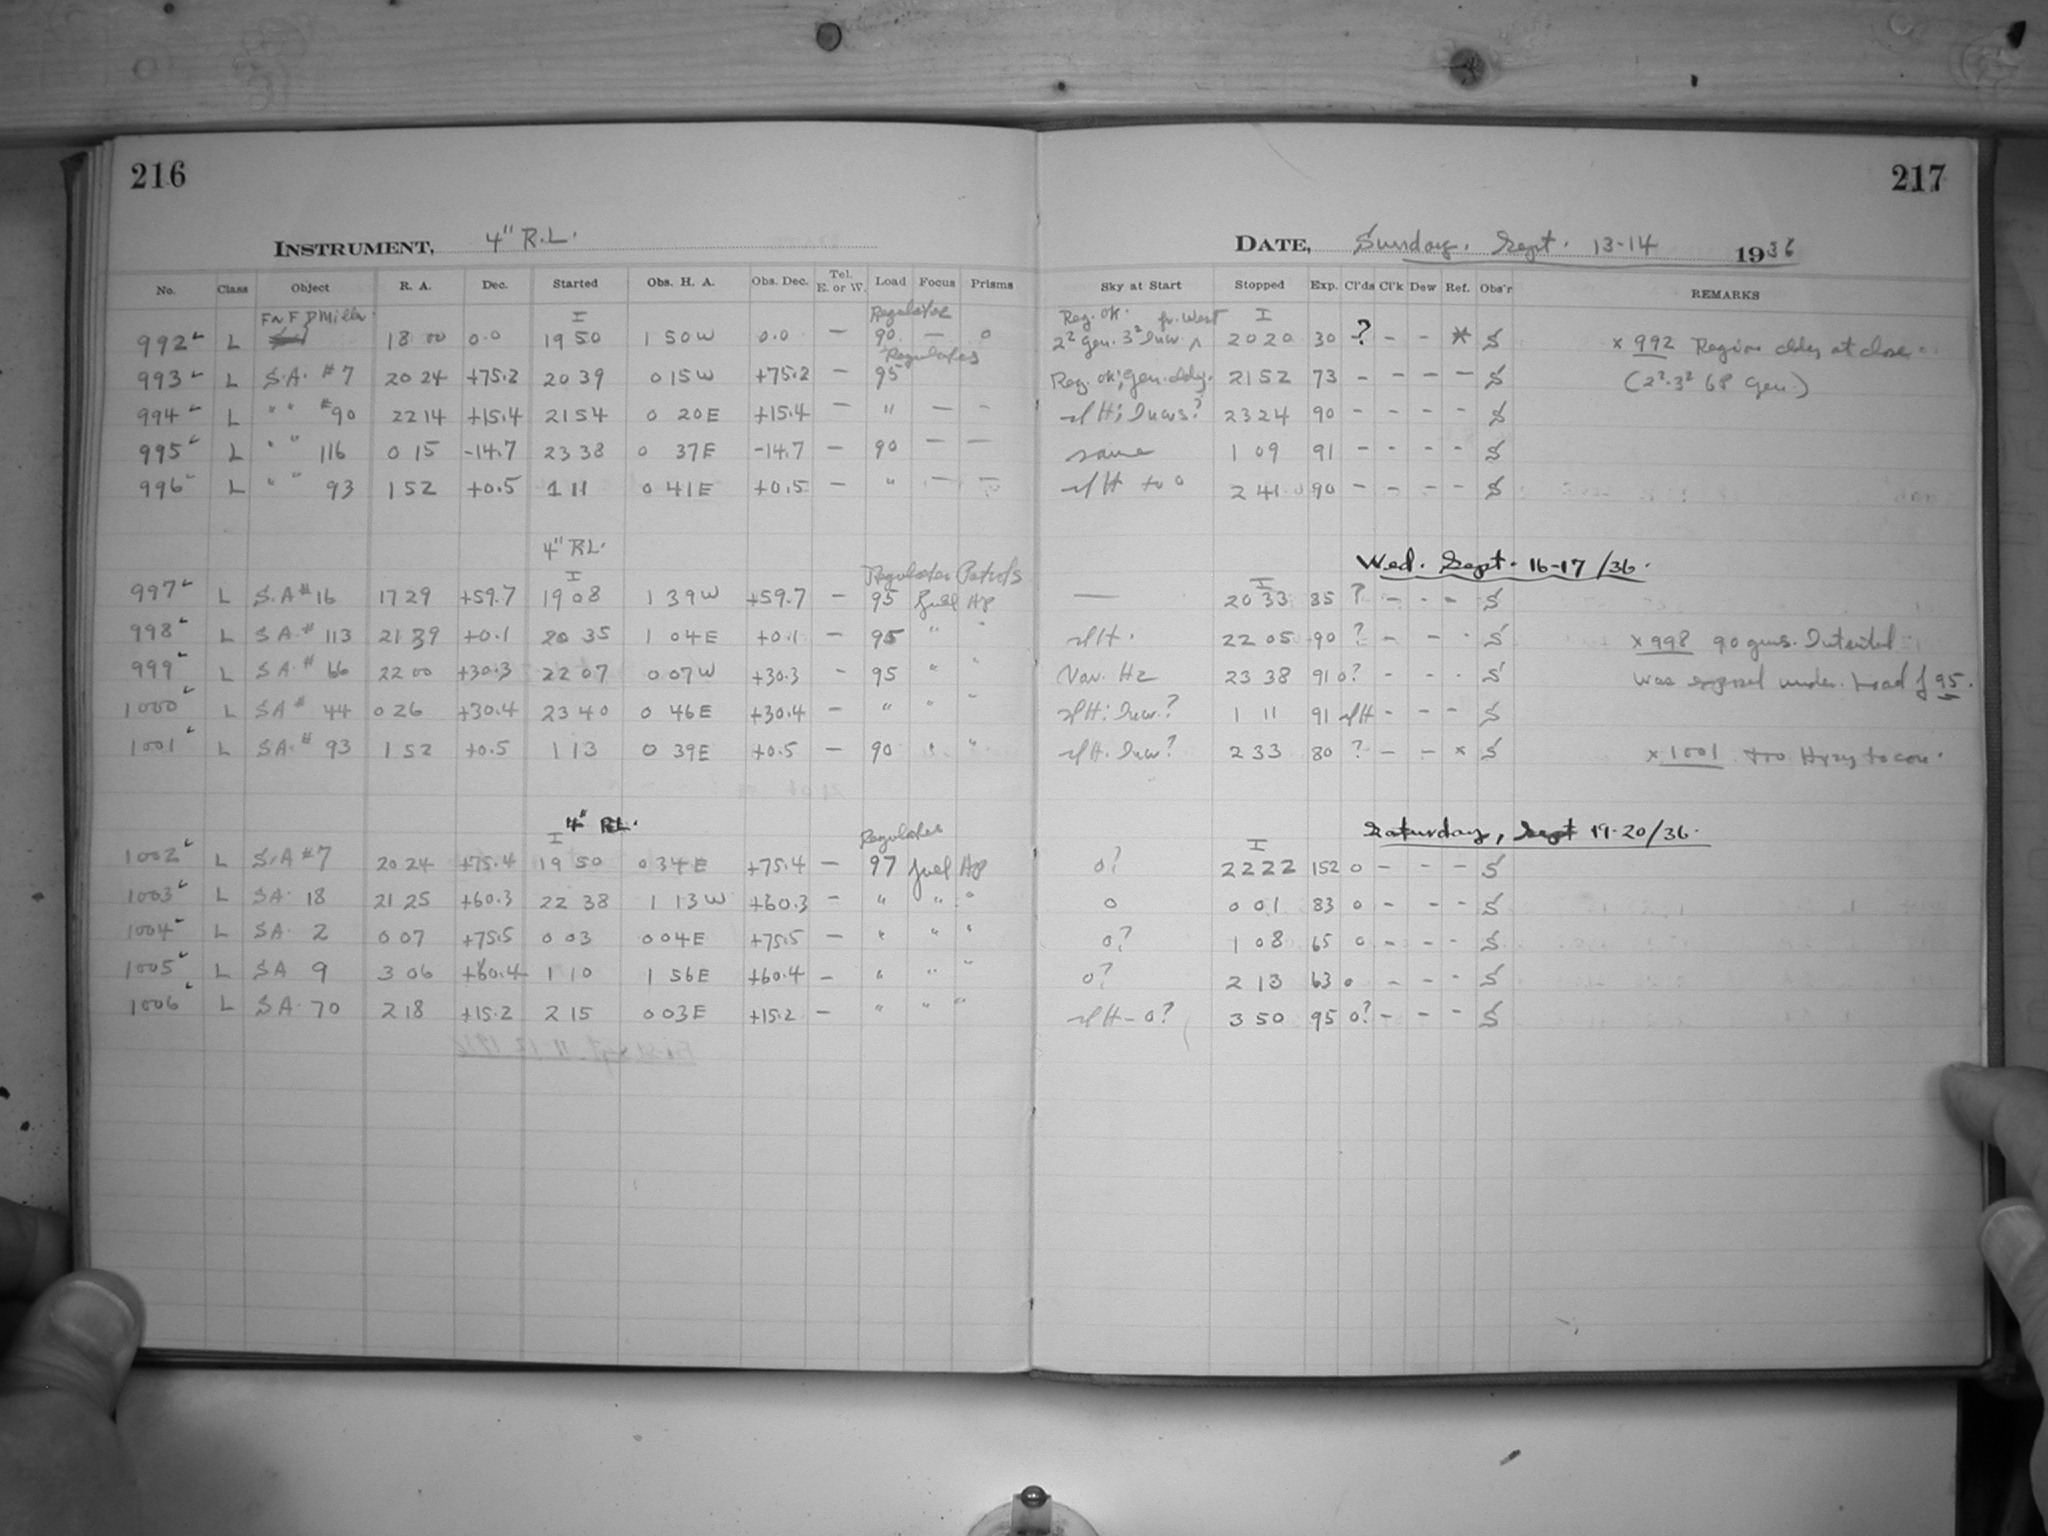 216
217
INSTRUMENT, 4" R.L.
DATE, Sunday. Sept. 13-14 1936
No. Class Object R. A. Dec. Started Obs. H. A. Obs. Dec. Tel. E. or W. Load Focus Prisms Sky at Start Stopped Exp. Cl'ds Cl'k Dew Ref. Obs'r REMARKS
For F D Miller I Regulator Reg. ok. fr. West I
992 L 18 00 0.0 19 50 1 50 W 0.0 — 90 — 0 2² gen. 3² 20 20 30 ? - - * S x 992 Region cldy at close
Regulates
993 L S.A. #7 20 24 +75.2 20 39 0 15 W +75.2 — 95 Reg. ok; gen. cldy. 21 52 73 - - - - S (2²-3² gen.)
994 L " " #90 22 14 +15.4 21 54 0 20 E +15.4 — " — - sl H; ? 23 24 90 - - - - S
995 L " " 116 0 15 -14.7 23 38 0 37 E -14.7 — 90 — — same 1 09 91 - - - - S
996 L " " 93 1 52 +0.5 1 11 0 41 E +0.5 — " — — sl H to 0 2 41 90 - - - - S
4" R.L.
Wed. Sept. 16-17/36.
I Regulates Patrols I
997 L S.A #16 17 29 +59.7 19 08 1 39 W +59.7 — 95 fuel Ap — 20 33 85 ? - - - S
998 L S A # 113 21 39 +0.1 20 35 1 04 E +0.1 — 95 " " sl H. 22 05 90 ? - - . S x 998 90 gms.
999 L S A. # 66 22 00 +30.3 22 07 0 07 W +30.3 - 95 " " Var. Hz 23 38 91 0? - - . S was exposed under load of 95.
1000 L S A # 44 0 26 +30.4 23 40 0 46 E +30.4 - " " " sl H: ? 1 11 91 sl H - - - S
1001 L S A. # 93 1 52 +0.5 1 13 0 39 E +0.5 — 90 " " sl H. ? 2 33 80 ? - - x S x 1001 too Hazy to con.
4" R.L.
Saturday, Sept 19-20/36.
I Regulates I
1002 L S.A #7 20 24 +75.4 19 50 0 34 E +75.4 — 97 fuel Ap 0? 22 22 152 0 - - - S
1003 L S A. 18 21 25 +60.3 22 38 1 13 W +60.3 - " " " 0 0 01 83 0 - - - S
1004 L S A. 2 0 07 +75.5 0 03 0 04 E +75.5 — " " " 0? 1 08 65 0 - - - S
1005 L S A 9 3 06 +60.4 1 10 1 56 E +60.4 - " " " 0? 2 13 63 0 - - - S
1006 L S A. 70 2 18 +15.2 2 15 0 03 E +15.2 — " " " sl H - 0? 3 50 95 0? - - - S